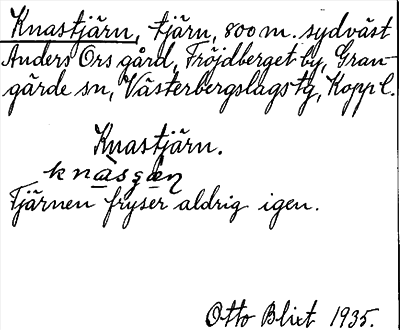 Knastjärn, tjärn, 800 m. sydväst
Anders Ors gård, Fröjdberget by, Gran-
gärde sn, Västerbergslags tg, Kopp l.
Knastjärn.
Tjärnen fryser aldrig igen.
Otto Blixt 1935.